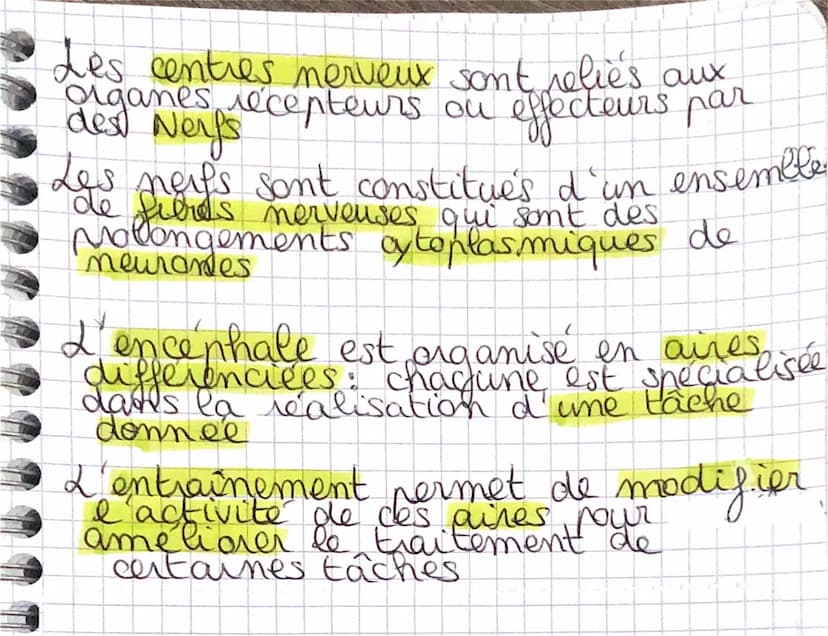 Les centres nerveux sont reliés aux
organes récepteurs ou effecteurs par
des Nerfs
Les nerfs sont constitués d'un ensemble
de fibres nerveuses qui sont des
prolongements cytoplasmiques de
neurones
L'encéphale est organisé en aires
différenciées : chacune est spécialisée
dans la réalisation d'une tâche
donnée
L'entraînement permet de modifier
l'activité de ces aires pour
améliorer le traitement de
certaines tâches